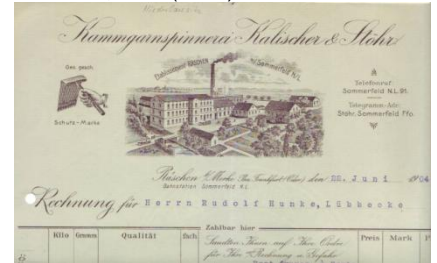 Kammgarnspinnerei Kalischer & Stöhr
Ges. gesch.
Schutz-Marke
Etablissement RÄSCHEN bei Sommerfeld N/L.
Telefonruf:
Sommerfeld N.L. 91.
Telegramm-Adr:
Stöhr, Sommerfeld Ffo.
Räschen b/Merke (Bez. Frankfurt a/Oder) den 22. Juni 19
Bahnstation Sommerfeld N.L.
Rechnung für Herrn Rudolf Hanke, Lübbecke
Zahlbar hier
Kilo Gramm Qualität fach Sandten Ihnen auf Ihre Order Preis Mark
für Ihre Rechnung u. Gefahr